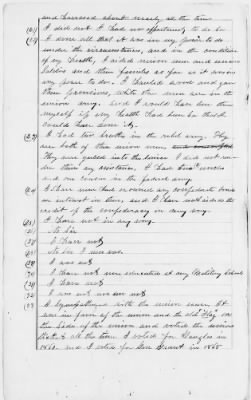 and harrassed about nearly all the time
(18) I did not I had no opportunity to do so
(19) I done all that it was in my power to do
under the circumstances, and in the condition
of my health, I aided union men and union
soldiers and their families as far as it was in
my power to do. I
their premises, while the men were in the
union army. And I would have been there
myself if my health had been so that I
could have done it.
I had two brothers in the rebel army. They
are both of them union men
They were forced into the service I did not
them any assistance, I had
and one cousin in the federal army.
I have never had or owned any confederate bonds
or interest in them, and I have not aided the
credit of the confederacy in any way.
I have not in any way.
No Sir
I have not
No Sir I was not
I was not
I have not nor educated at any Military School
I have not
I was not nor am not
I sympathized with the union cause It
was in favor of the union and the old flag on
the side of the union and voted the union
ticket all the time I voted for Douglas in
1860. and I voted for Gen Grant in 1868